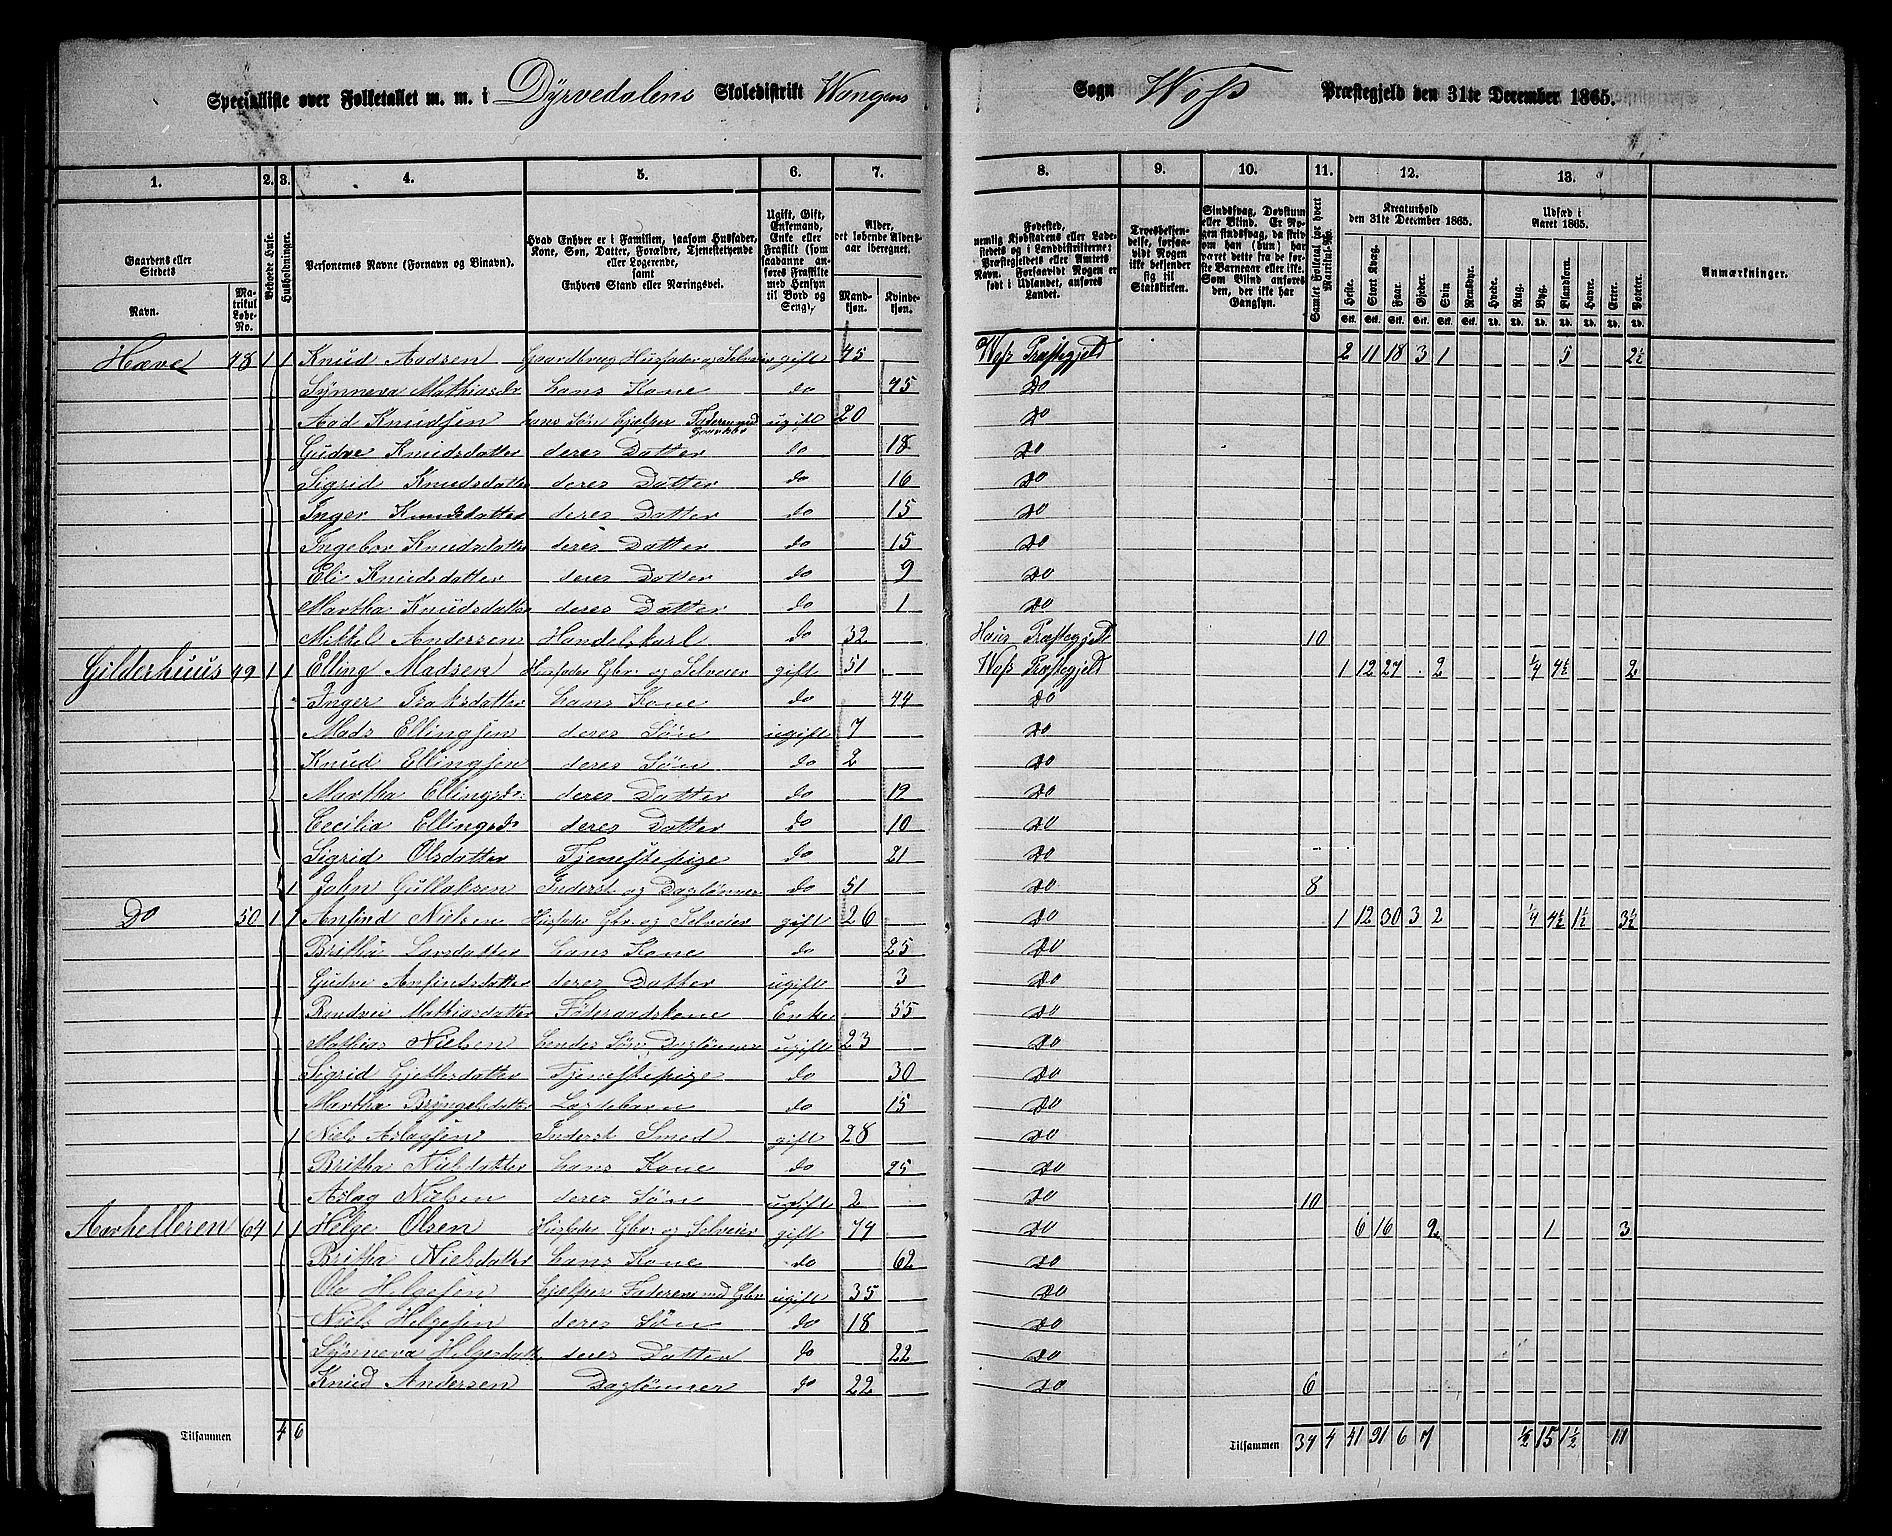 Specialliste over Folketallet m. m. i Dyrvedalens Skoledistrikt Wangens Sogn Woss Præstegjeld den 31te December 1865.
1. 2. 3. 4. 5. 6. 7. 8. 9. 10. 11. 12. 13.
Gaardens eller Stedets
Navn. Matrikul Løbe-No.
Beboede Huse.
Husholdninger.
Personernes Navne (Fornavn og Binavn).
Hvad Enhver er i Familien, saasom Husfader, Kone, Søn, Datter, Forældre, Tjenestetyende eller Logerende, samt Enhvers Stand eller Næringsvei.
Ugift, Gift, Enkemand, Enke eller Fraskilt (saadanne anføres Fraskilte med Hensyn til Bord og Seng).
Alder, det løbende Aldersaar iberegnet.
Mandkjøn. Kvindekjøn.
Fødested, nemlig Kjøbstadens eller Ladestedets og i Landdistrikterne: Præstegjeldets eller Amtets Navn. Forsaavidt Nogen er født i Udlandet, anføres Landet.
Troesbekjendelse, forsaavidt Nogen ikke bekjender sig til Statskirken.
Sindssvag, Døvstum eller Blind. Er Nogen sindssvag, da skrives om han (hun) har været dette fra de første Barneaar eller ikke. Som Blind anføres den, der ikke har Gangsyn.
Samlet Folketal for hvert Matrikul-No.
Kreaturhold den 31te December 1865.
Heste. Stort Kvæg. Faar. Gjeder. Svin. Rensdyr.
Udsæd i Aaret 1865.
Hvede. Rug. Byg. Blandkorn. Havre. Erter. Poteter.
Anmærkninger.
Hæve 48 1 1 Knud Aadsen Gaardbrug Husfader og Selveier gift 45 Woss Præstegjeld 2 11 18 3 1 5 2½
Synneva Mathiasdr hans Kone do 45 Do
Aad Knudsen hans Søn hjelper Faderen med Gaardsbr ugift 20 Do
Gudve Knudsdatter deres Datter do 18 Do
Sigrid Knudsdatter deres Datter do 16 Do
Inger Knudsdatter deres Datter do 15 Do
Ingebor Knudsdatter deres Datter do 15 Do
Eli Knudsdatter deres Datter do 9 Do
Martha Knudsdatter deres Datter do 1 Do
Mikkel Andersen Handelskarl do 32 Haus Præstegjeld 10
Gilderhuus 49 1 1 Elling Madsen Husfader Gbr. og Selveier gift 51 Woss Præstegjeld 1 12 27 2 ¼ 4½ 2
Inger Isaksdatter hans Kone do 44 Do
Mads Ellingsen deres Søn ugift 7 Do
Knud Ellingsen deres Søn do 2 Do
Martha Ellingsdr. deres Datter do 19 Do
Cecilia Ellingsdr deres Datter do 10 Do
Sigrid Olsdatter Tjenestepige do 21 Do
1 John Gullaksen Inderst og Dagløner do 51 Do 8
Do 50 1 1 Anfind Nielsen Husfader Gbr. og Selveier gift 26 Do 1 12 30 3 2 ¼ 4½ 1½ 3½
Britha Larsdatter hans Kone do 25 Do
Gudve Anfindsdatter deres Datter ugift 3 Do
Randvei Mathiasdatter Føderaadskone Enke 55 Do
Mathias Nielsen hendes Søn Dagløner ugift 23 Do
Sigrid Gjetlesdatter Tjenestepige do 30 Do
Martha Bryngelsdatter Lægdebarn do 15 Do
1 Niels Aslagsen Inderst Smed gift 28 Do
Britha Nielsdatter hans Kone do 25 Do
Aslag Nielsen deres Søn ugift 2 Do 10
Aarhelleren 64 1 1 Helge Olsen Husfader Gbr. og Selveier gift 74 Do 6 16 2 1 3
Britha Nielsdatter hans Kone do 62 Do
Ole Helgesen hjelper Faderen md Gbr ugift 35 Do
Niels Helgesen deres Søn do 18 Do
Synneva Helgesdatter deres Datter do 22 Do
Knud Andersen Dagløner do 22 Do 6
Tilsammen 4 6 Tilsammen 34 4 41 91 6 7 ½ 15 1½ 11